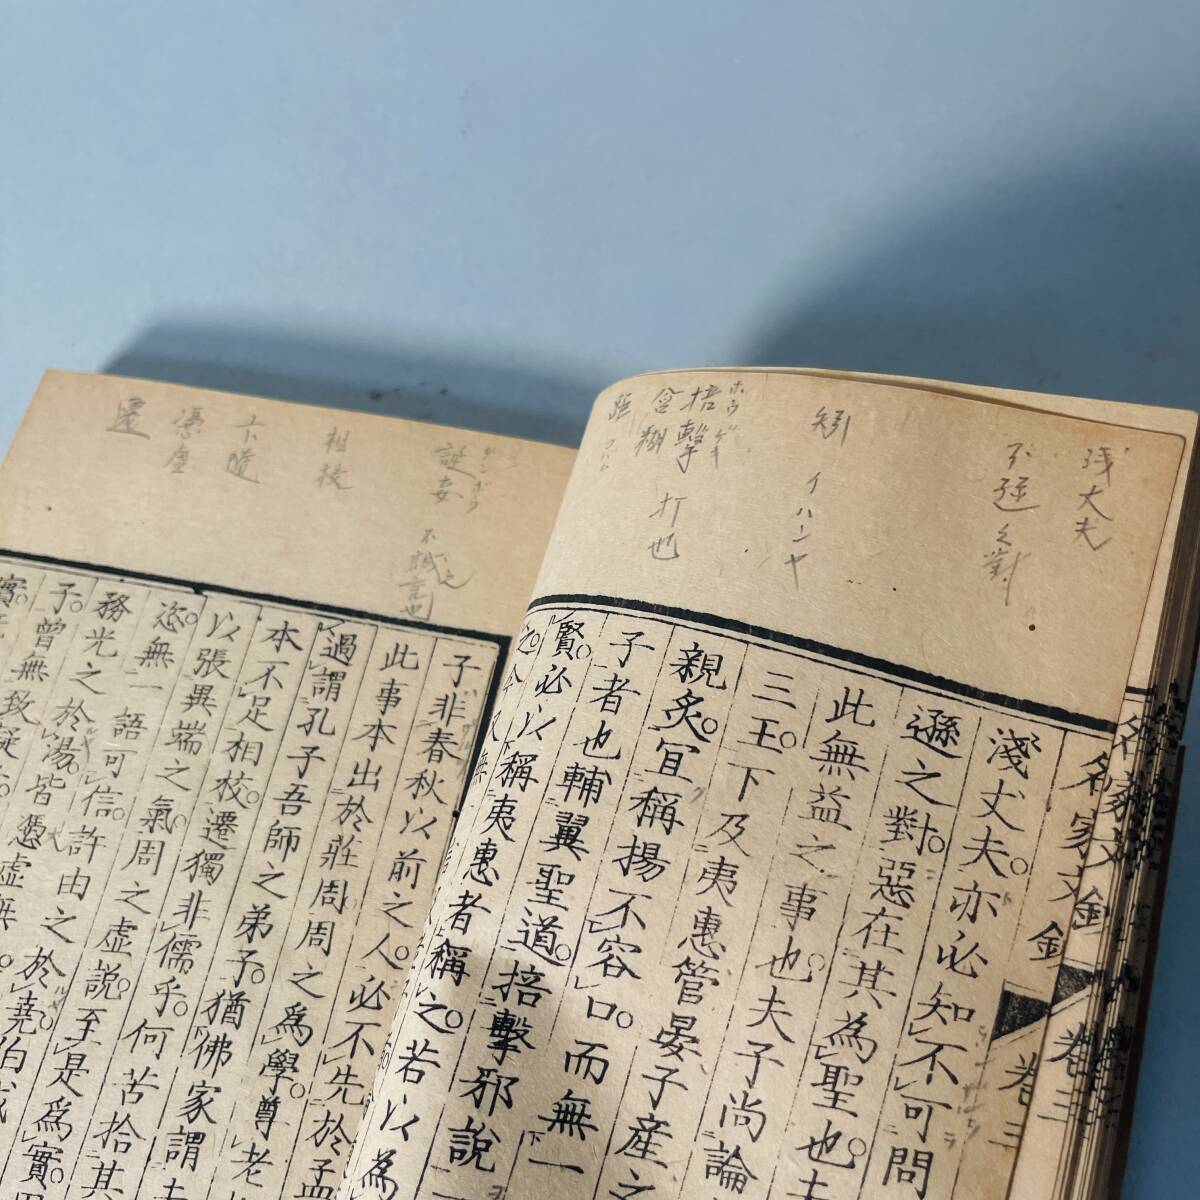 浅丈夫
不遜之對
矧 イハンヤ
掊擊 ホウゲキ 打也
含糊
距
名家文鈔 卷三
淺丈夫。亦必知不可問
遜之對。惡在其為聖也。夫
此無益之事也。夫子尚論
三王。下及夷惠管晏子產之
親炙。宜稱揚不容口。而無一
子者也。輔翼聖道。掊擊邪說
賢。必以稱夷惠者稱之。若以為
誕妄
不誠言也
相校
卞隨
憑虛
還
子非春秋以前之人。必不先於孟
此事本出於莊周。周之為學。尊老
過謂孔子吾師之弟子。猶佛家謂
本不足相校。遷獨非儒乎。何苦拾其
以張異端之氣。周之虛說。至是為實。
恣無一語可信。許由之於堯。伯成
務光之於湯。皆憑虛無
子。曾無致疑